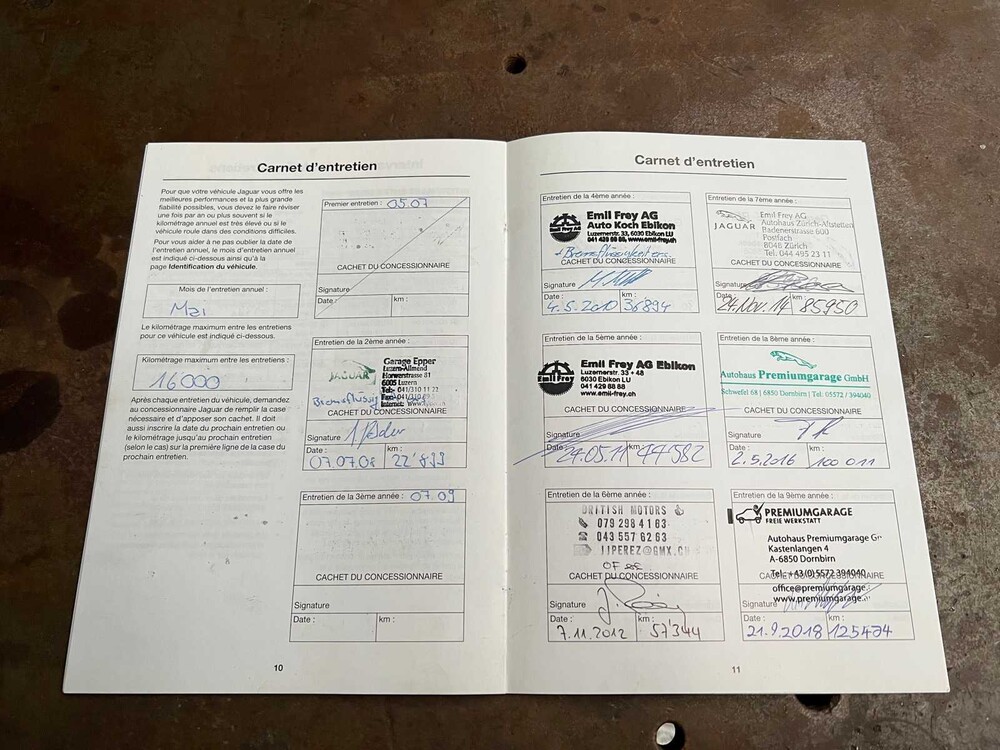 Carnet d'entretien
Pour que vôtre véhicule Jaguar vous offre les
meilleures performances et la plus grande
fiabilité possibles, vous devez le faire réviser
une fois par an ou plus souvent si le
kilométrage annuel est très élevé ou si le
véhicule roule dans des conditions difficiles.
Pour vous aider à ne pas oublier la date de
l'entretien annuel, le mois d'entretien annuel
est indiqué ci-dessous ainsi qu'à la
page Identification du véhicule.
Mois de l'entretien annuel :
Mai
Le kilométrage maximum entre les entretiens
pour ce véhicule est indiqué ci-dessous.
Kilométrage maximum entre les entretiens :
16000
Après chaque entretien du véhicule, demandez
au concessionnaire Jaguar de remplir la case
nécessaire et d'apposer son cachet. Il doit
aussi inscrire la date du prochain entretien ou
le kilométrage jusqu'au prochain entretien
(selon le cas) sur la première ligne de la case du
prochain entretien.
Premier entretien : 05.07
CACHET DU CONCESSIONNAIRE
Signature
Date : km :
Entretien de la 2ème année :
JAGUAR
Garage Epper
Luzern-Allmend
Horwerstrasse 81
6005 Luzern
Tel: 041/310 11 22
Fax:
Internet:
CACHET DU CONCESSIONNAIRE
Signature
Date : km :
07.07.08 22'833
Entretien de la 3ème année : 07.09
CACHET DU CONCESSIONNAIRE
Signature
Date : km :
10
Carnet d'entretien
Entretien de la 4ème année :
Emil Frey AG
Auto Koch Ebikon
Luzernerstr. 33, 6030 Ebikon LU
041 429 88 88, www.emil-frey.ch
CACHET DU CONCESSIONNAIRE
Signature
Date : km :
4.5.2010 36894
Entretien de la 5ème année :
Emil Frey
Emil Frey AG Ebikon
Luzernerstr. 33 + 48
6030 Ebikon LU
041 429 88 88
www.emil-frey.ch
CACHET DU CONCESSIONNAIRE
Signature
Date : km :
24.05.11 44582
Entretien de la 6ème année :
BRITISH MOTORS
079 298 41 63
043 557 62 63
JJPEREZ@GMX.CH
CACHET DU CONCESSIONNAIRE
Signature
Date : km :
7.11.2012 57'344
Entretien de la 7ème année :
JAGUAR
Emil Frey AG
Autohaus Zürich-Altstetten
Badenerstrasse 600
Postfach
8048 Zürich
Tel. 044 495 23 11
CACHET DU CONCESSIONNAIRE
Signature
Date : km :
24.Nov.14 85950
Entretien de la 8ème année :
Autohaus Premiumgarage GmbH
Schwefel 68 | 6850 Dornbirn | Tel. 05572 / 394040
CACHET DU CONCESSIONNAIRE
Signature
Date : km :
2.5.2016 100 011
Entretien de la 9ème année :
PREMIUMGARAGE
FREIE WERKSTATT
Autohaus Premiumgarage
Kastenlangen 4
A-6850 Dornbirn
Tel.: +43(0)5572 394040
CACHET DU CONCESSIONNAIRE
office@premiumgarage.
www.premiumgarage.
Signature
Date : km :
21.9.2018 125474
11